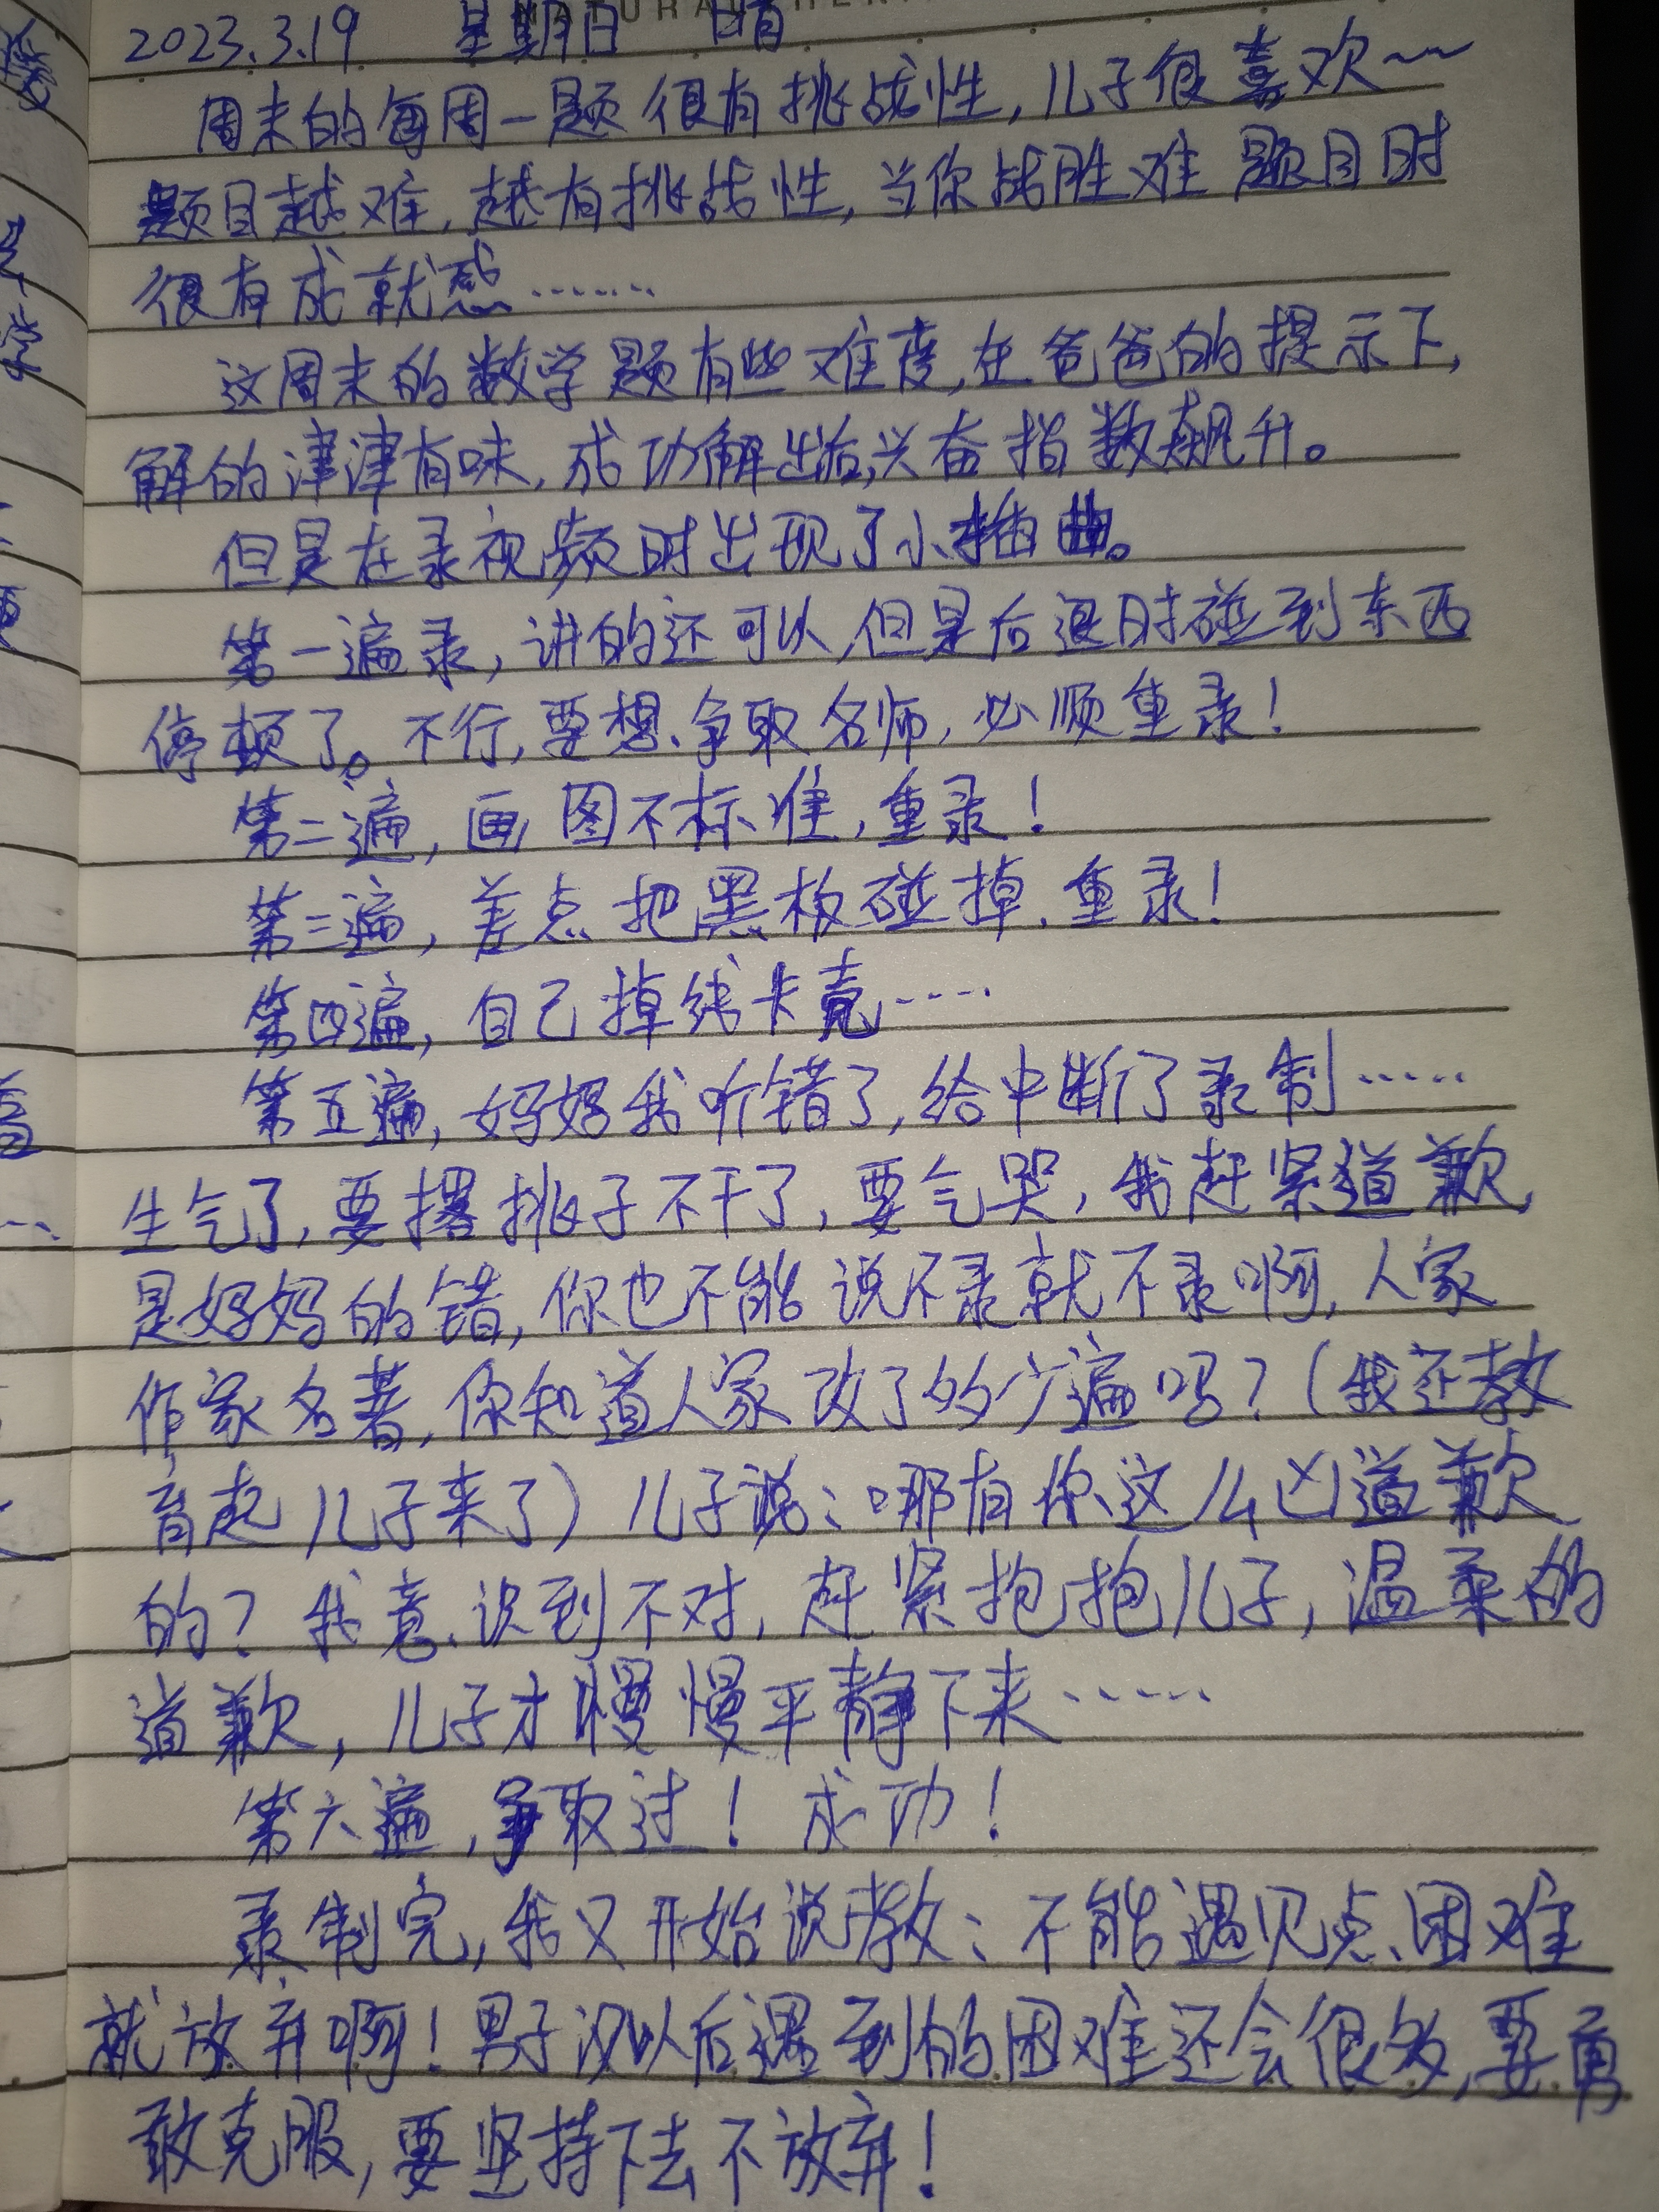 2023.3.19 星期日 晴
周末的每周一题很有挑战性,儿子很喜欢~~
题目越难,越有挑战性,当你战胜难题目时
很有成就感……
这周末的数学题有些难度,在爸爸的提示下,
解的津津有味,成功解出后,兴奋指数飙升。
但是在录视频时出现了小插曲。
第一遍录,讲的还可以,但是后退时碰到东西
停顿了。不行,要想争取名师,必顺重录!
第二遍,画图不标准,重录!
第三遍,差点把黑板碰掉,重录!
第四遍,自己掉线卡壳……
第五遍,妈妈我听错了,给中断了录制……
生气了,要撂挑子不干了,要气哭,我赶紧道歉,
是妈妈的错,你也不能说不录就不录啊,人家
作家名著,你知道人家改了多少遍吗?(我还教
育起儿子来了)儿子说:哪有你这么凶道歉
的?我意识到不对,赶紧抱抱儿子,温柔的
道歉,儿子才慢慢平静下来……
第六遍,争取过!成功!
录制完,我又开始说教:不能遇见点困难
就放弃啊!男子汉以后遇到的困难还会很多,要勇
敢克服,要坚持下去不放弃!